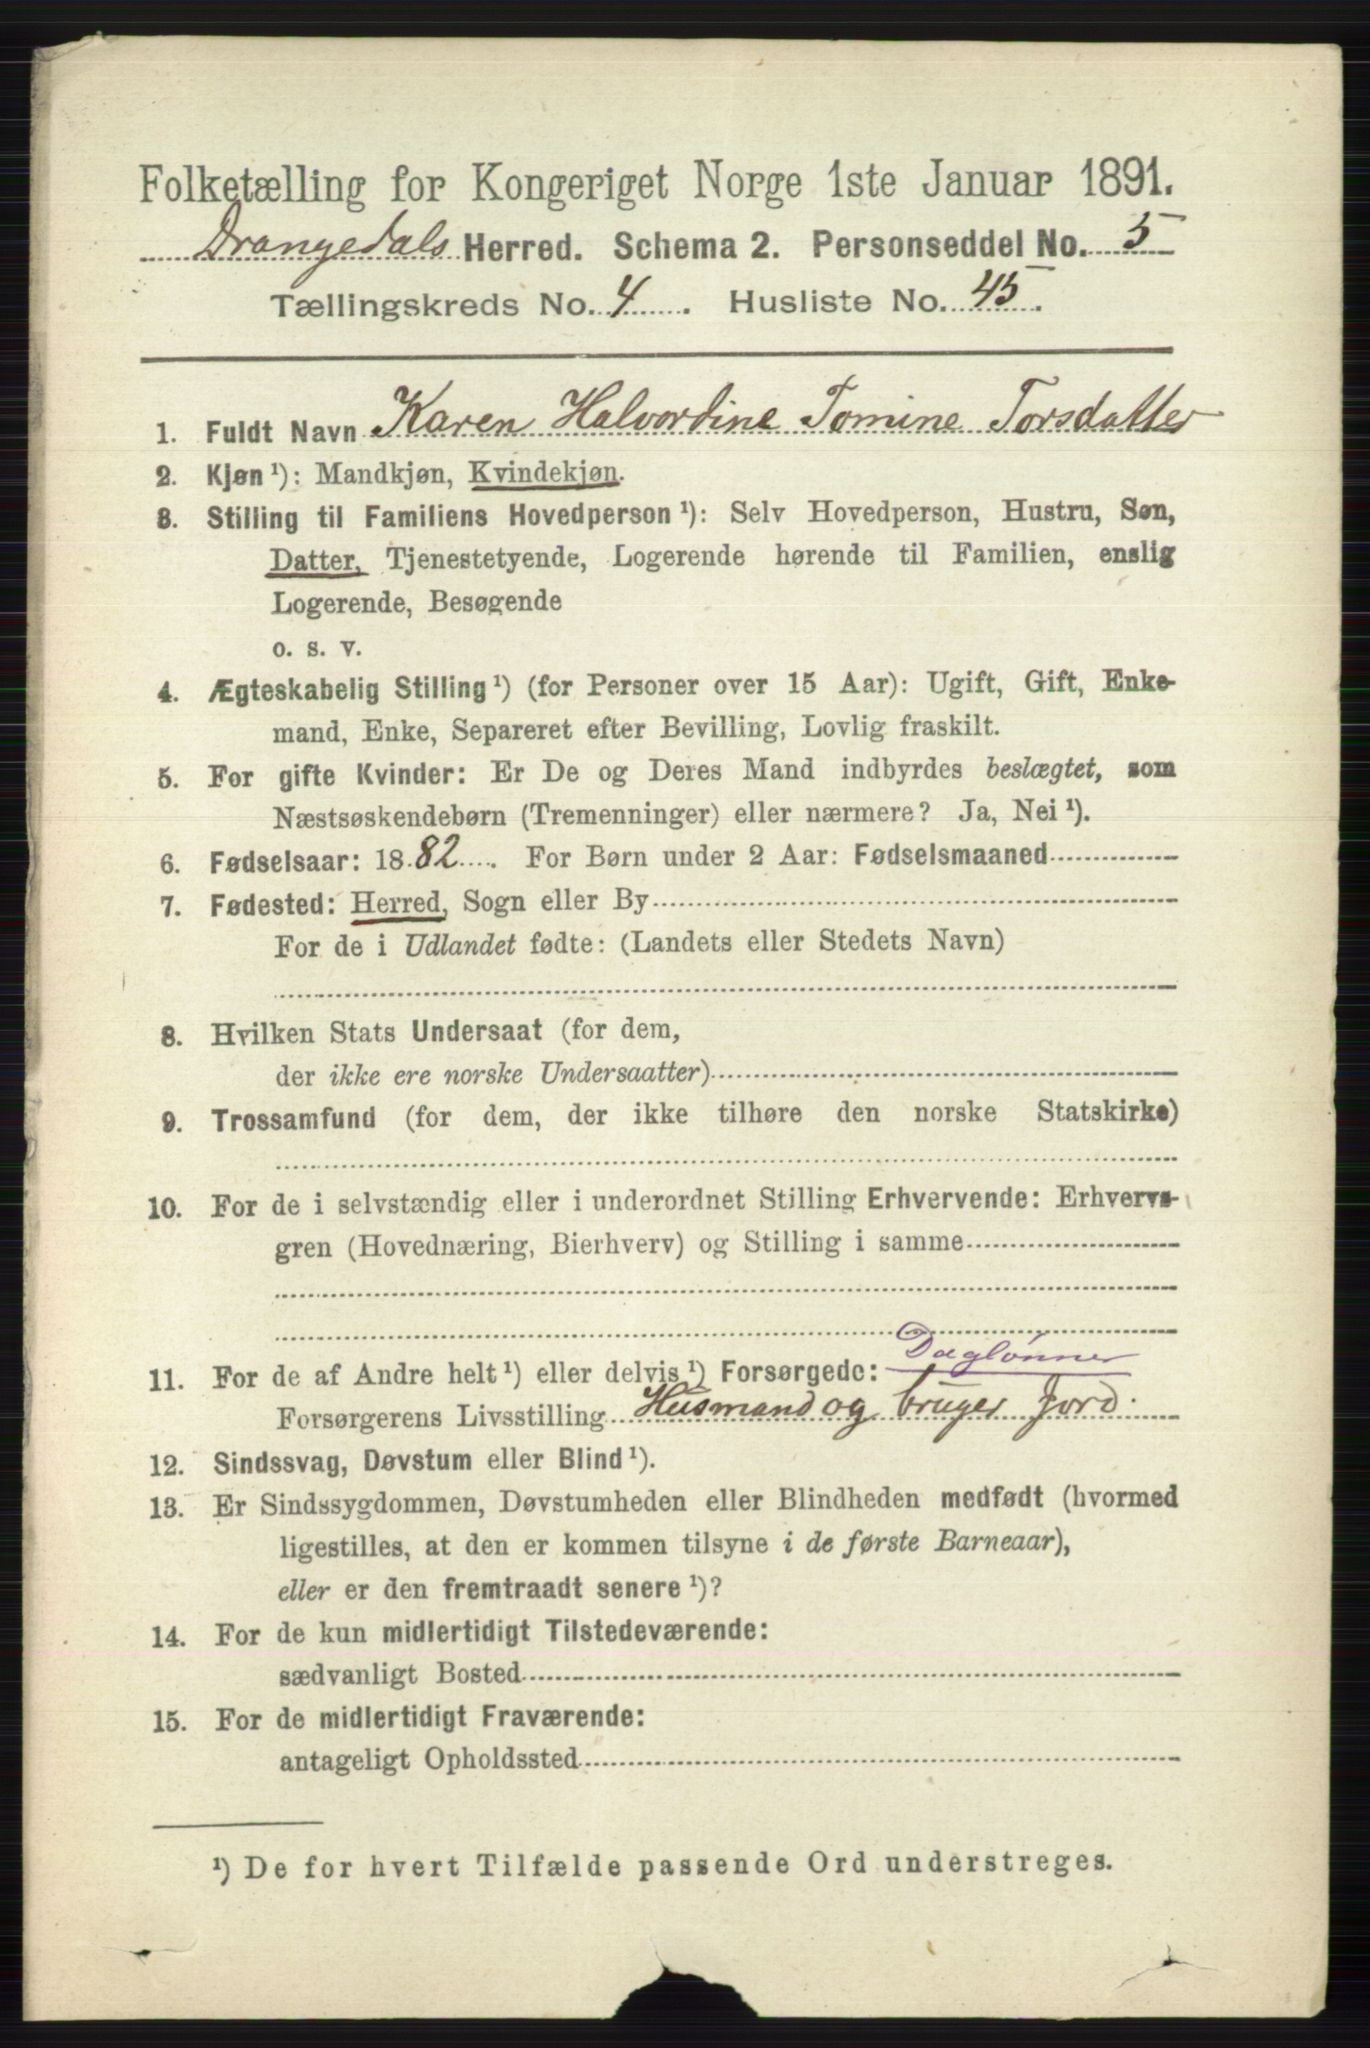 Folketælling for Kongeriget Norge 1ste Januar 1891.
Drangedals Herred. Schema 2. Personseddel No. 5
Tællingskreds No. 4. Husliste No. 45.
1. Fuldt Navn Karen Halvordine Tomine Torsdatter
2. Kjøn¹): Mandkjøn, Kvindekjøn.
3. Stilling til Familiens Hovedperson¹): Selv Hovedperson, Hustru, Søn,
Datter, Tjenestetyende, Logerende hørende til Familien, enslig
Logerende, Besøgende
o. s. v.
4. Ægteskabelig Stilling¹) (for Personer over 15 Aar): Ugift, Gift, Enke-
mand, Enke, Separeret efter Bevilling, Lovlig fraskilt.
5. For gifte Kvinder: Er De og Deres Mand indbyrdes beslægtet, som
Næstsøskendebørn (Tremenninger) eller nærmere? Ja, Nei¹).
6. Fødselsaar: 1882. For Børn under 2 Aar: Fødselsmaaned
7. Fødested: Herred, Sogn eller By
For de i Udlandet fødte: (Landets eller Stedets Navn)
8. Hvilken Stats Undersaat (for dem,
der ikke ere norske Undersaatter)
9. Trossamfund (for dem, der ikke tilhøre den norske Statskirke)
10. For de i selvstændig eller i underordnet Stilling Erhvervende: Erhvervs-
gren (Hovednæring, Bierhverv) og Stilling i samme
Daglønner
11. For de af Andre helt¹) eller delvis¹) Forsørgede:
Forsørgerens Livsstilling Husmand og bruger Jord.
12. Sindssvag, Døvstum eller Blind¹).
13. Er Sindssygdommen, Døvstumheden eller Blindheden medfødt (hvormed
ligestilles, at den er kommen tilsyne i de første Barneaar),
eller er den fremtraadt senere¹)?
14. For de kun midlertidigt Tilstedeværende:
sædvanligt Bosted
15. For de midlertidigt Fraværende:
antageligt Opholdssted
¹) De for hvert Tilfælde passende Ord understreges.